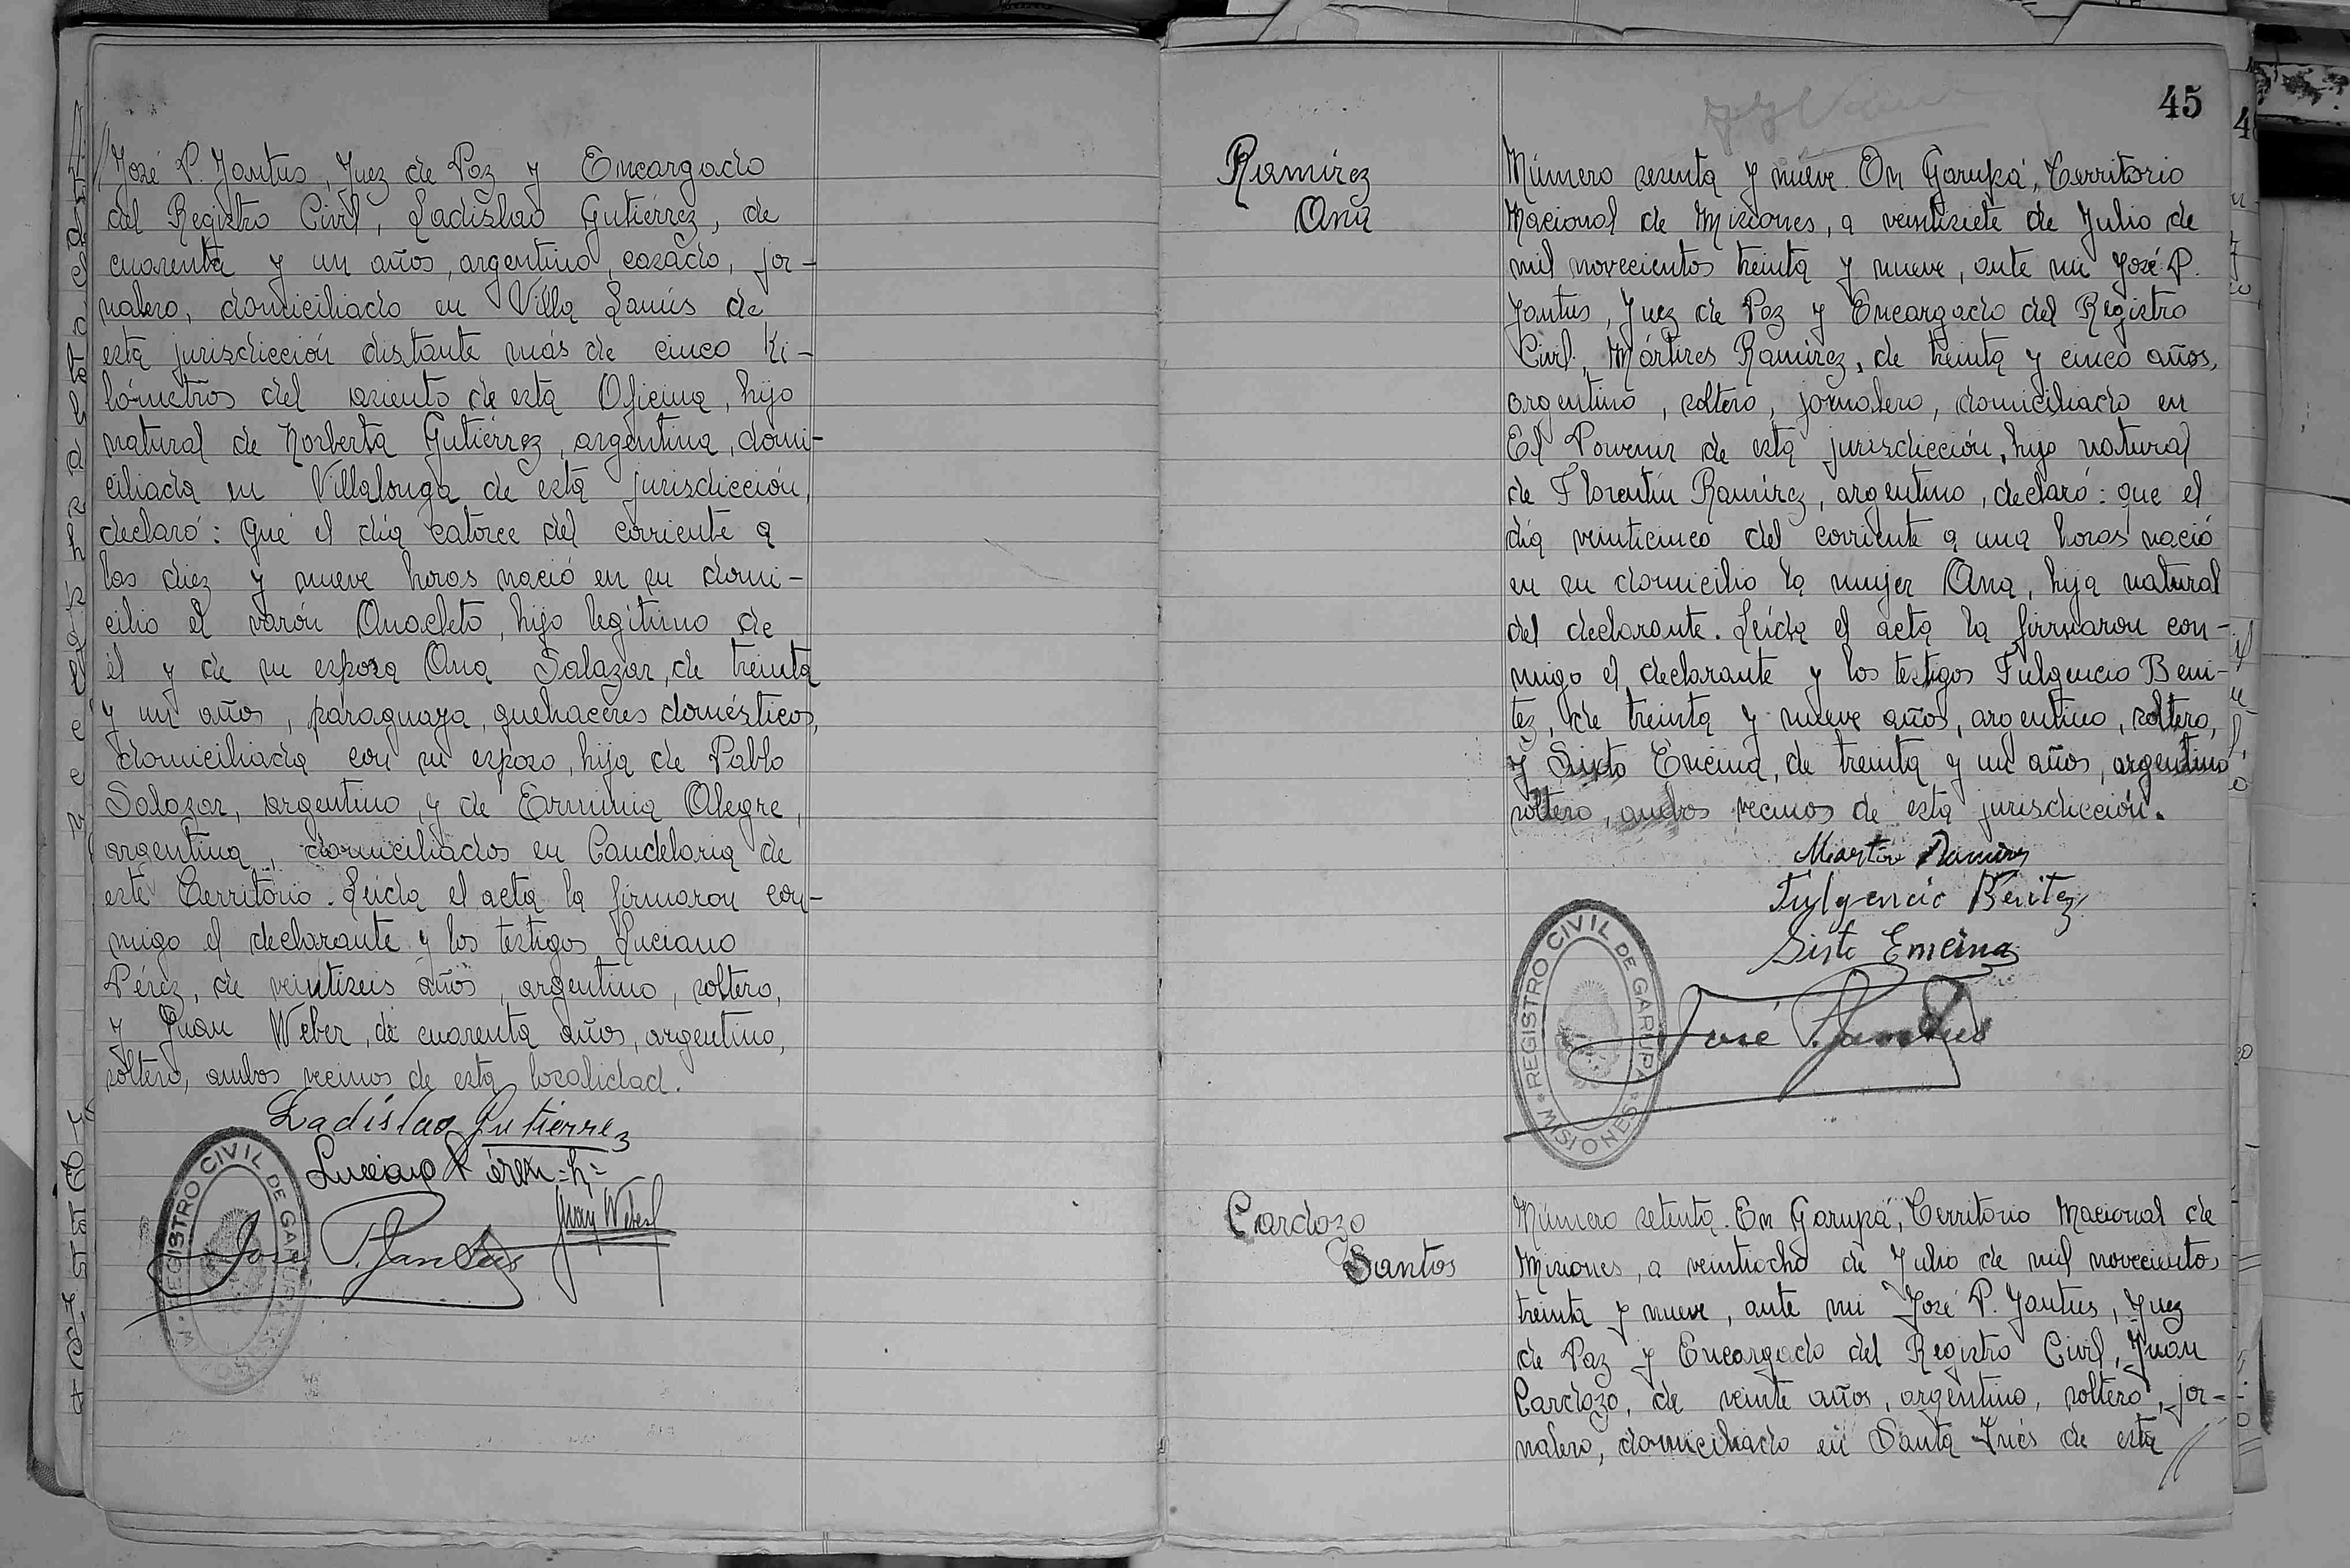 José P. Jantus, Juez de Paz y Encargado
del Registro Civil, Ladislao Gutiérrez, de
cuarenta y un años, argentino, casado, jor-
nalero, domiciliado en Villa Lanús de
esta jurisdicción distante más de cinco ki-
lómetros del asiento de esta Oficina, hijo
natural de Norberta Gutiérrez, argentina, domi-
ciliada en Villalonga de esta jurisdicción,
declaró: Que el día catorce del corriente a
las diez y nueve horas nació en su domi-
cilio el varón Anacleto, hijo legítimo de
él y de su esposa Ana Salazar, de treinta
y un años, paraguaya, quehaceres domésticos,
domiciliada con su esposo, hija de Pablo
Salazar, argentino, y de Erminia Alegre,
argentina, domiciliados en Candelaria de
este Territorio. Leída el acta la firmaron con-
migo el declarante y los testigos Luciano
Pérez, de veintiseis años, argentino, soltero,
y Juan Weber, de cuarenta años, argentino,
soltero, ambos vecinos de esta localidad.
Ladislao Gutierrez
Luciano Pérez -h-
Juan Weber
José P. Jantus
REGISTRO CIVIL DE GARUPA
45
Ramírez
Ana
Número sesenta y nueve. En Garupá, Territorio
Nacional de Misiones, a veintisiete de Julio de
mil novecientos treinta y nueve, ante mi José P.
Jantus, Juez de Paz y Encargado del Registro
Civil, Mártires Ramírez, de treinta y cinco años,
argentino, soltero, jornalero, domiciliado en
El Povenir de esta jurisdicción, hijo natural
de Florentín Ramírez, argentino, declaró: que el
día veinticinco del corriente a una horas nació
en su domicilio la mujer Ana, hija natural
del declarante. Leída el acta la firmaron con-
migo el declarante y los testigos Fulgencio Beni-
tez, de treinta y nueve años, argentino, soltero,
y Sixto Encina, de treinta y un años, argentino
soltero, ambos vecinos de esta jurisdicción.
Martire Ramires
Fulgencio Benitez
Sisto Emcina
José P. Jantus
REGISTRO CIVIL DE GARUPA * MISIONES *
Cardozo
Santos
Número setenta. En Garupá, Territorio Nacional de
Misiones, a veintiocho de Julio de mil novecientos
treinta y nueve, ante mi José P. Jantus, Juez
de Paz y Encargado del Registro Civil, Juan
Cardozo, de veinte años, argentino, soltero, jor-
nalero, domiciliado en Santa Inés de esta